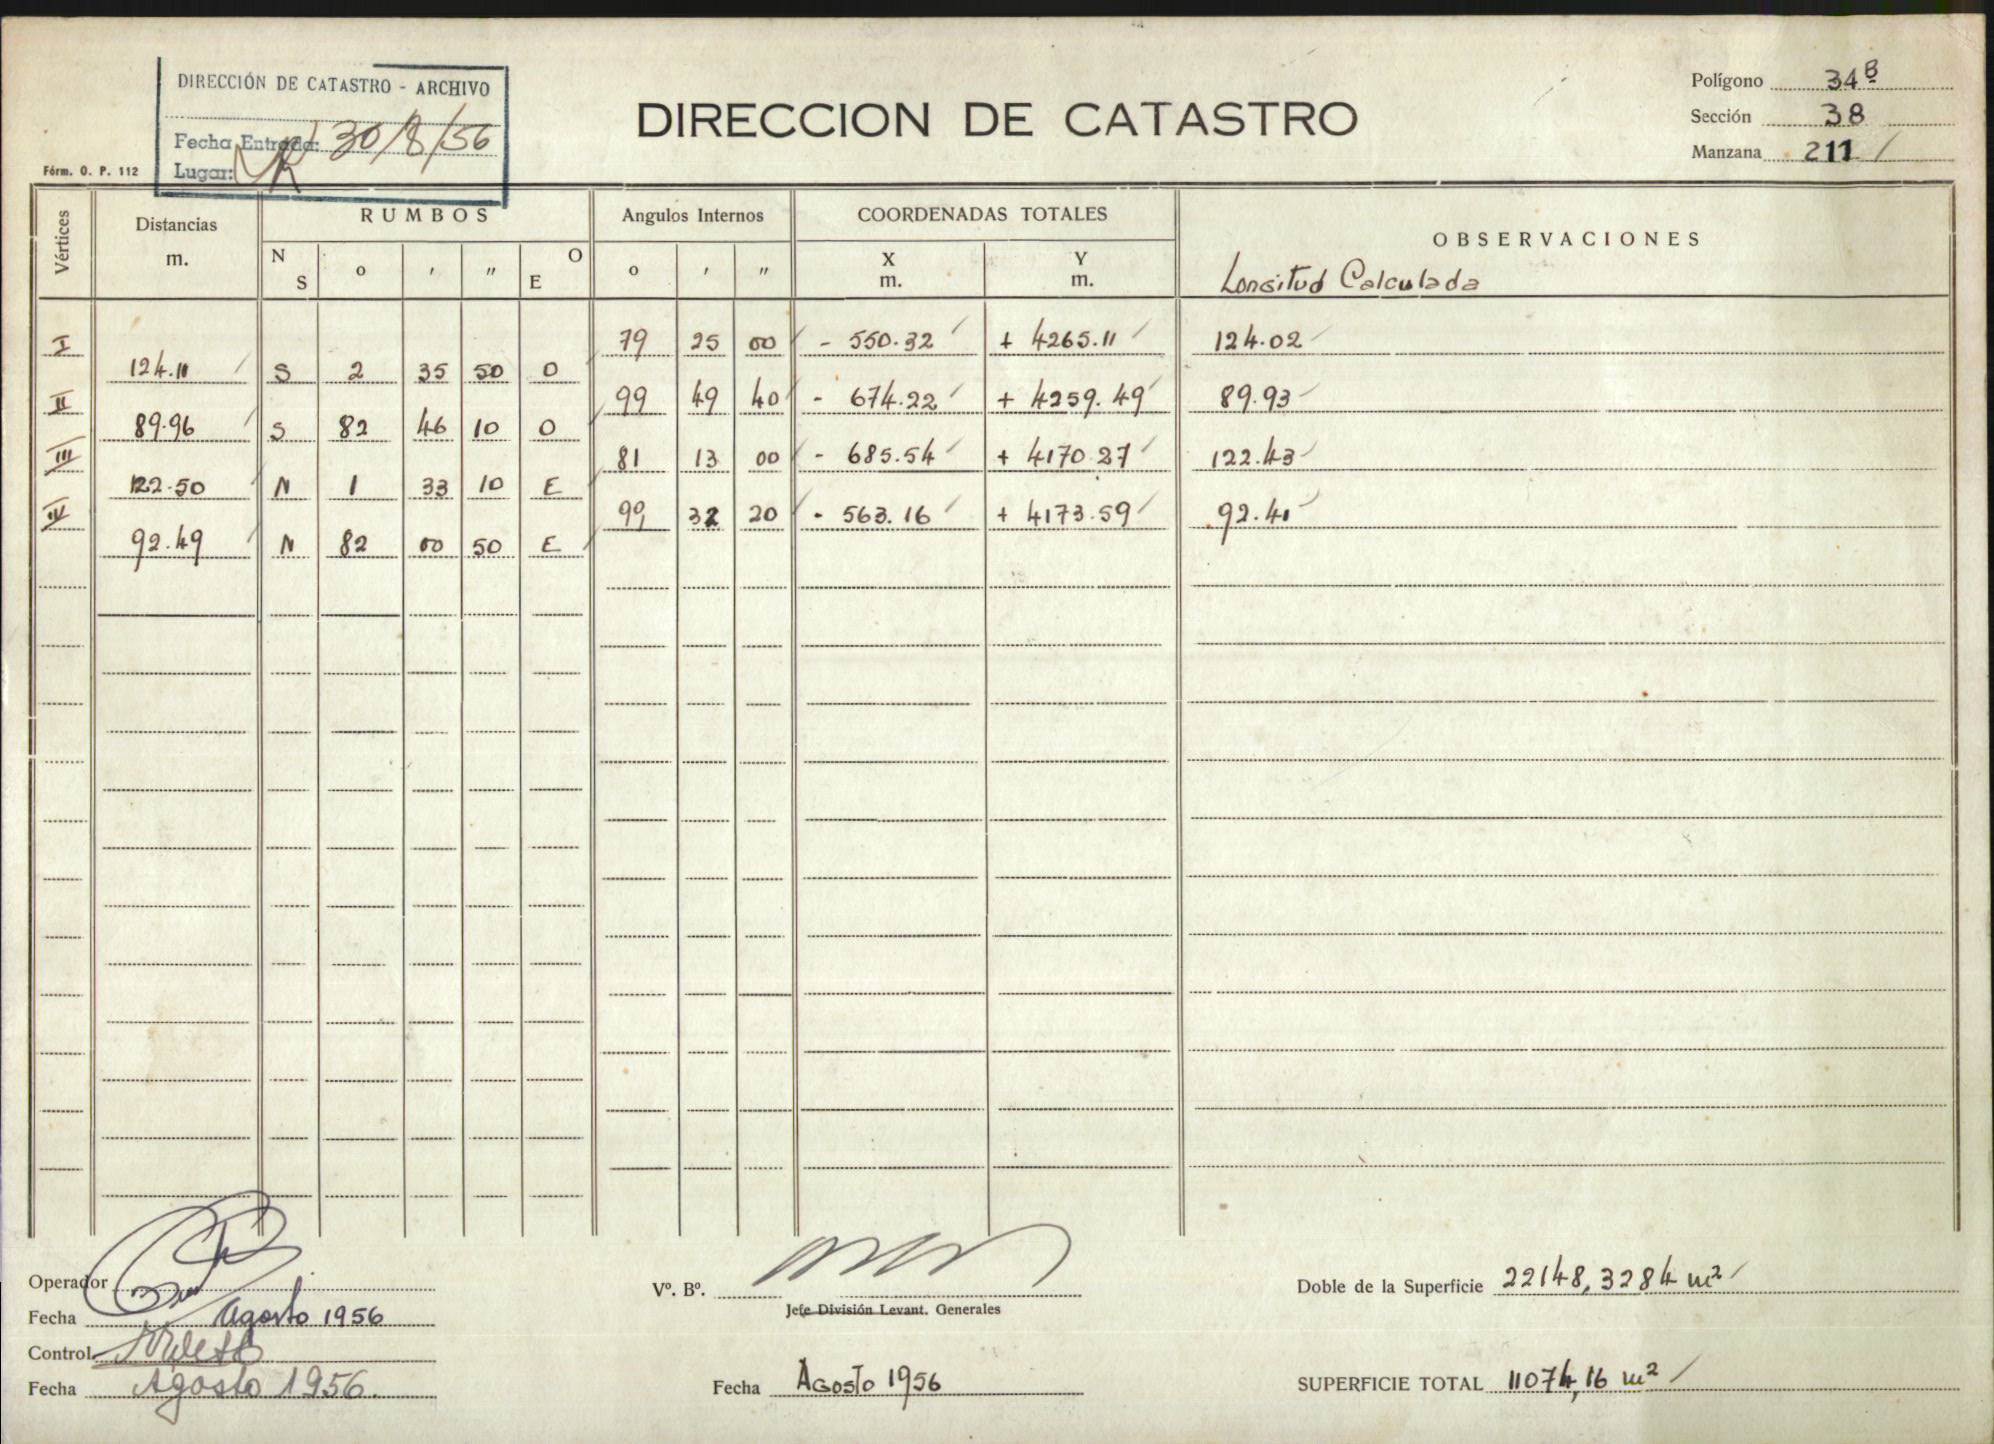 DIRECCIÓN DE CATASTRO - ARCHIVO
Fecha Entrada: 30/8/56
Lugar:
Fórm. O. P. 112
DIRECCION DE CATASTRO
Polígono 34 B
Sección 38
Manzana 211
Vértices Distancias m. RUMBOS Angulos Internos COORDENADAS TOTALES OBSERVACIONES
N S o ' " O E o ' " X m. Y m. Longitud Calculada
I 79 25 00 - 550.32 + 4265.11 124.02
124.11 S 2 35 50 O
II 99 49 40 - 674.22 + 4259.49 89.93
89.96 S 82 46 10 O
III 81 13 00 - 685.54 + 4170.27 122.43
122.50 N 1 33 10 E
IV 99 32 20 - 563.16 + 4173.59 92.41
92.49 N 82 00 50 E
Operador
Fecha Agosto 1956
Control
Fecha Agosto 1956.
Vº. Bº.
Jefe División Levant. Generales
Fecha Agosto 1956
Doble de la Superficie 22148,3284 m²
SUPERFICIE TOTAL 11074,16 m²